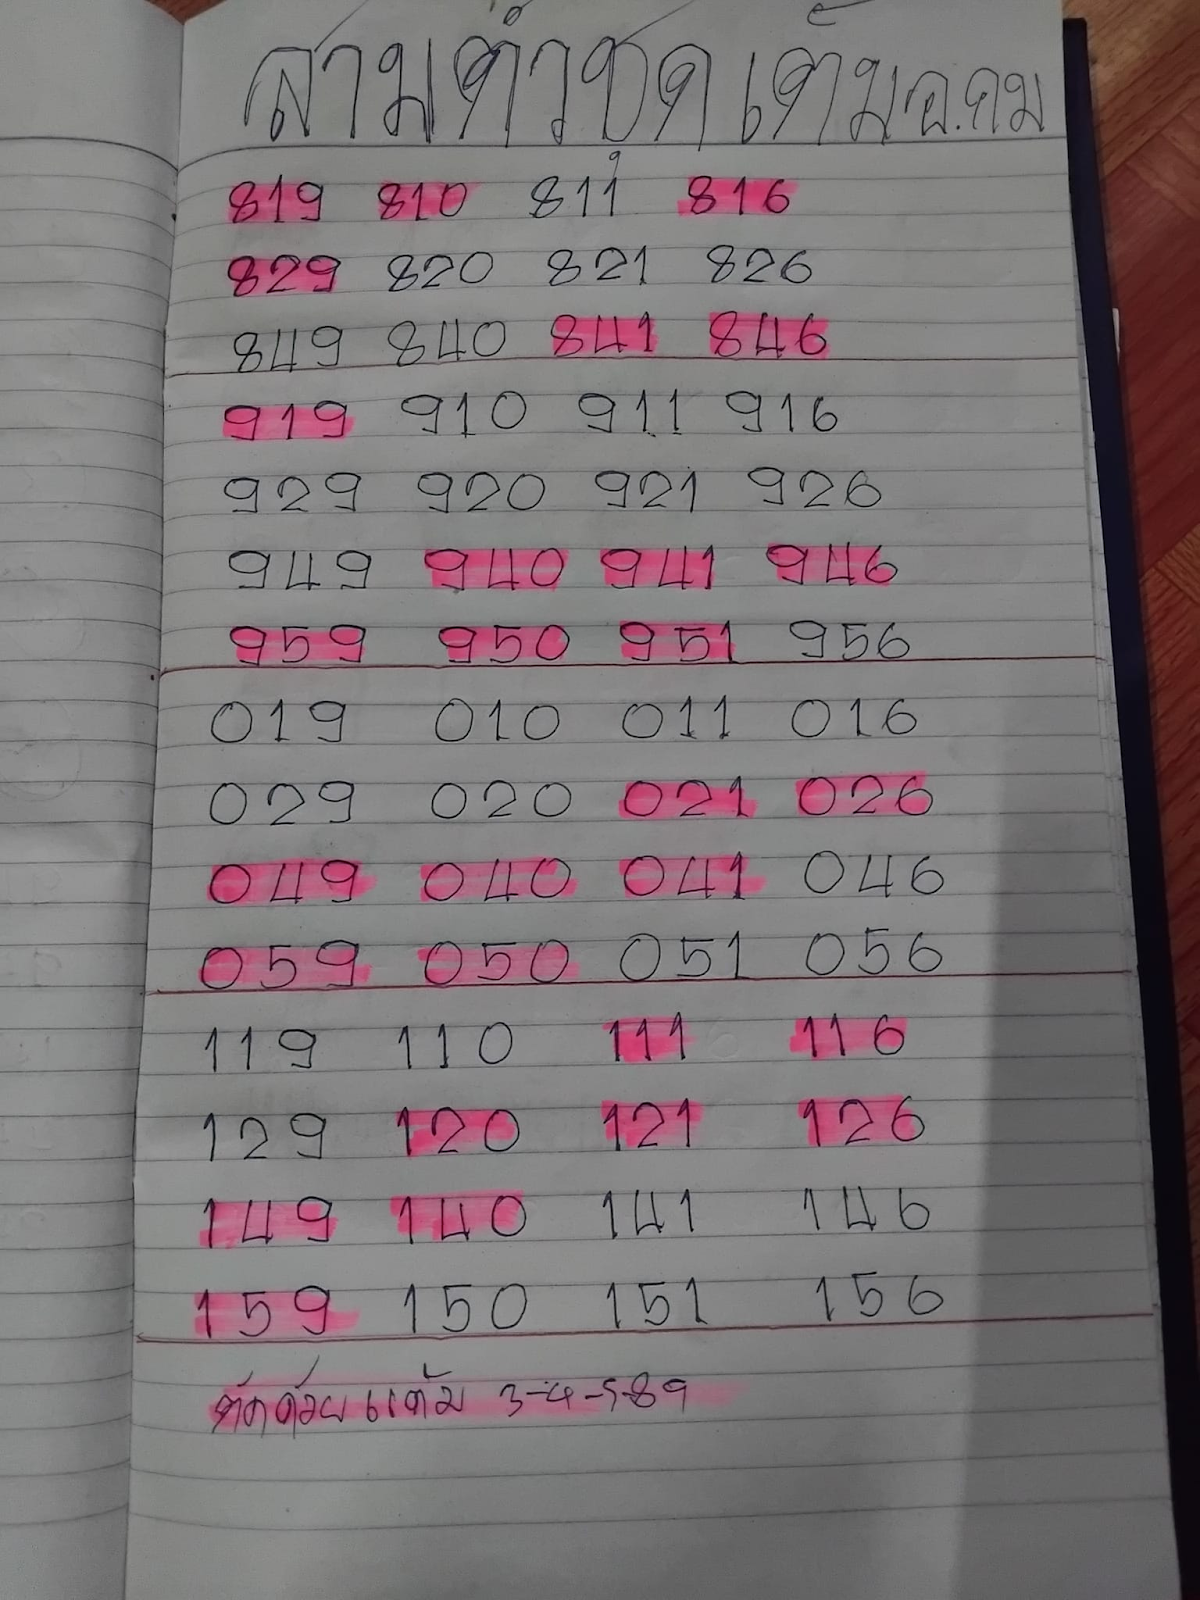 สามตัวชุดเต็ม อ.คม
819 810 811 816
829 820 821 826
849 840 841 846
919 910 911 916
929 920 921 926
949 940 941 946
959 950 951 956
019 010 011 016
029 020 021 026
049 040 041 046
059 050 051 056
119 110 111 116
129 120 121 126
149 140 141 146
159 150 151 156
ตัดด้วยแต้ม 3-4-5-89